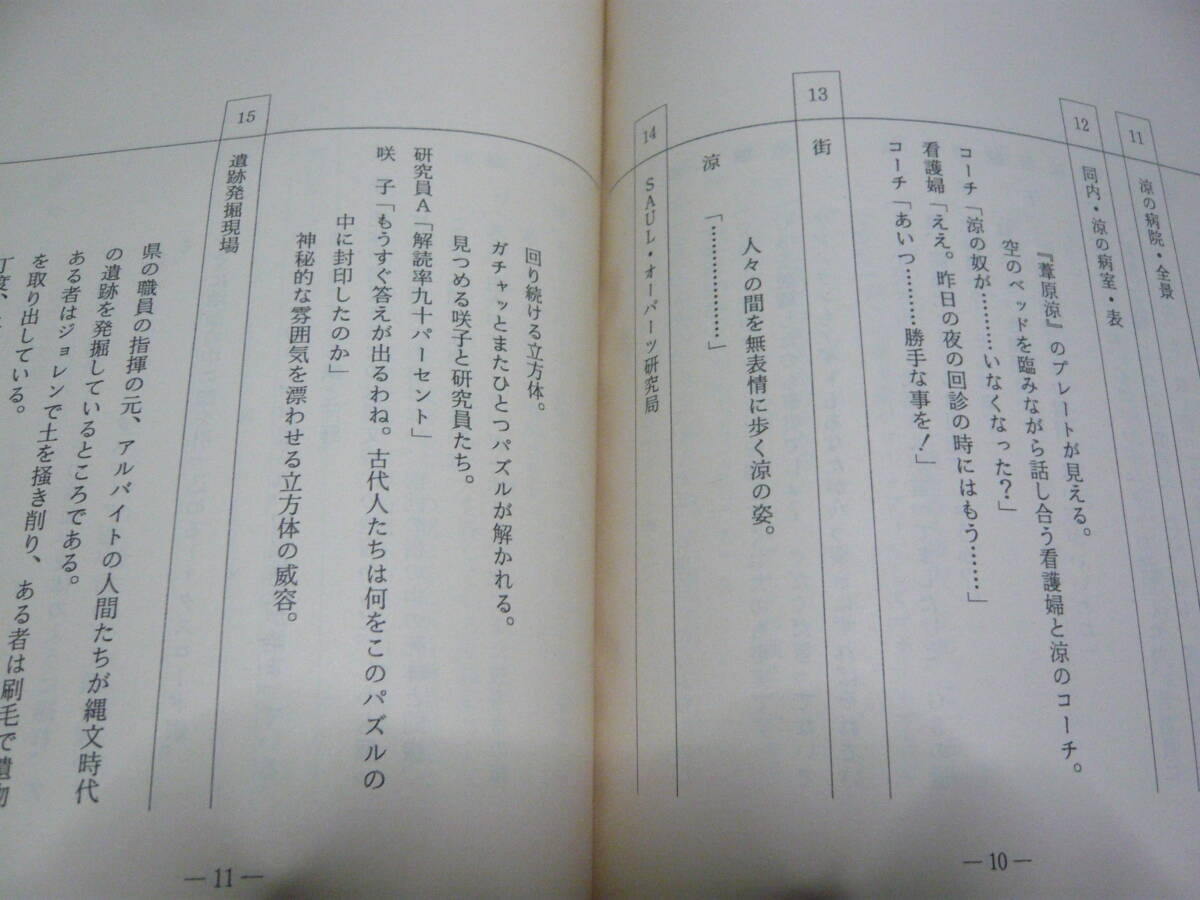 11
涼の病院・全景
12
同内・涼の病室・表
『葦原涼』のプレートが見える。
空のベッドを臨みながら話し合う看護婦と涼のコーチ。
コーチ「涼の奴が………いなくなった？」
看護婦「ええ。昨日の夜の回診の時にはもう……」
コーチ「あいつ………勝手な事を！」
13
街
人々の間を無表情に歩く涼の姿。
涼「………………」
14
SAUL・オーパーツ研究局
回り続ける立方体。
ガチャッとまたひとつパズルが解かれる。
見つめる咲子と研究員たち。
研究員A「解読率九十パーセント」
咲　子「もうすぐ答えが出るわね。古代人たちは何をこのパズルの
中に封印したのか」
神秘的な雰囲気を漂わせる立方体の威容。
15
遺跡発掘現場
県の職員の指揮の元、アルバイトの人間たちが縄文時代
の遺跡を発掘しているところである。
ある者はジョレンで土を掻き削り、ある者は刷毛で遺物
を取り出している。
丁度、
― 10 ―
― 11 ―